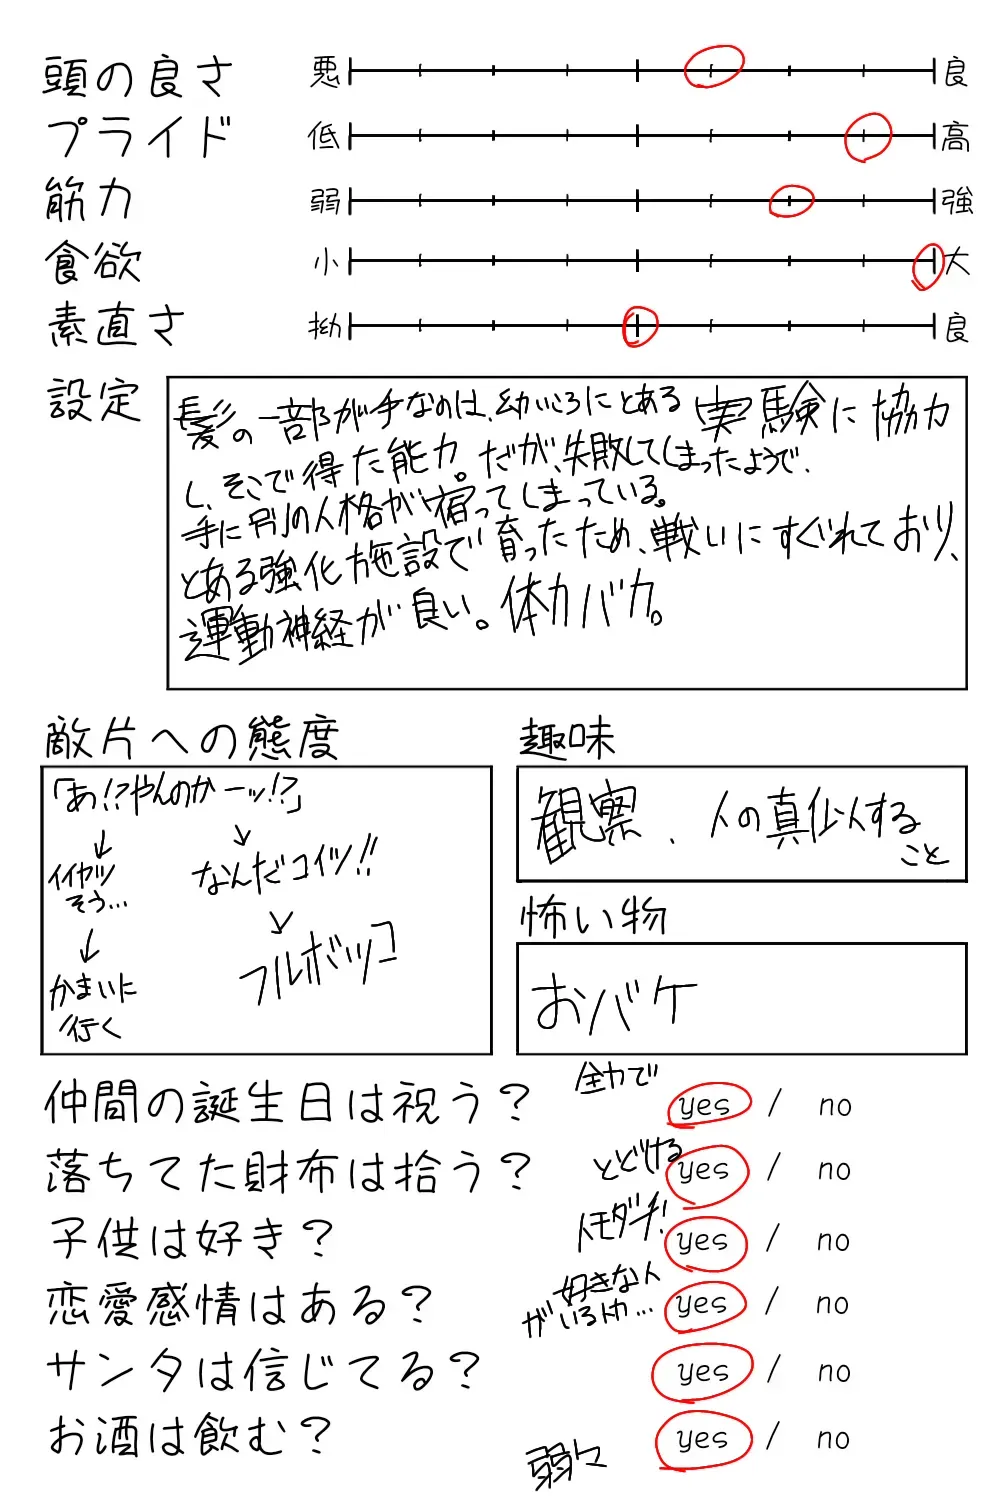 頭の良さ 悪 良
プライド 低 高
筋力 弱 強
食欲 小 大
素直さ 拗 良
設定
髪の一部が手なのは、幼いころにとある実験に協力
し、そこで得た能力。だが、失敗してしまったようで、
手に別の人格が宿ってしまっている。
とある強化施設で育ったため、戦いにすぐれており、
運動神経が良い。体力バカ。
敵片への態度
「あ!?やんのかーッ!?」
↓
イイヤツ
そう…
↓
かまいに
行く
↓
なんだコイツ!!
↓
フルボッコ
趣味
観察、人の真似する
こと
怖い物
おバケ
仲間の誕生日は祝う? 全力で yes / no
落ちてた財布は拾う? とどける yes / no
子供は好き? トモダチ! yes / no
恋愛感情はある? 好きな人
がいるトカ… yes / no
サンタは信じてる? yes / no
お酒は飲む? 弱々 yes / no